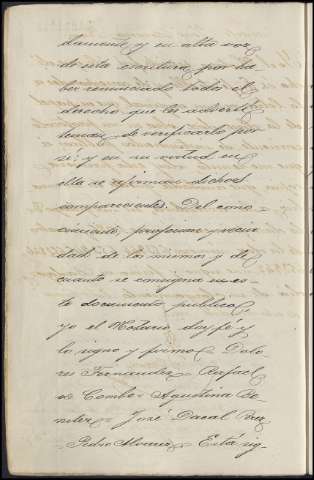 tamente y en alta voz
de esta escritura por ha
ber renunciado todos el
derecho que les advertí
tenian de verificarlo por
sí: y en su virtud en
ella se afirman dichos
comparecientes. Del cono-
cimiento, profesion y vecin
dad de los mismos y de
cuanto se consigna en es
te documento público,
yo el Notario doy fé y
lo signo y firmo = Dolo
res Fernandez = Rafael
de Combo = Agustina Be
nitez = José Dacal
= Pedro Alvarez = Está sig-